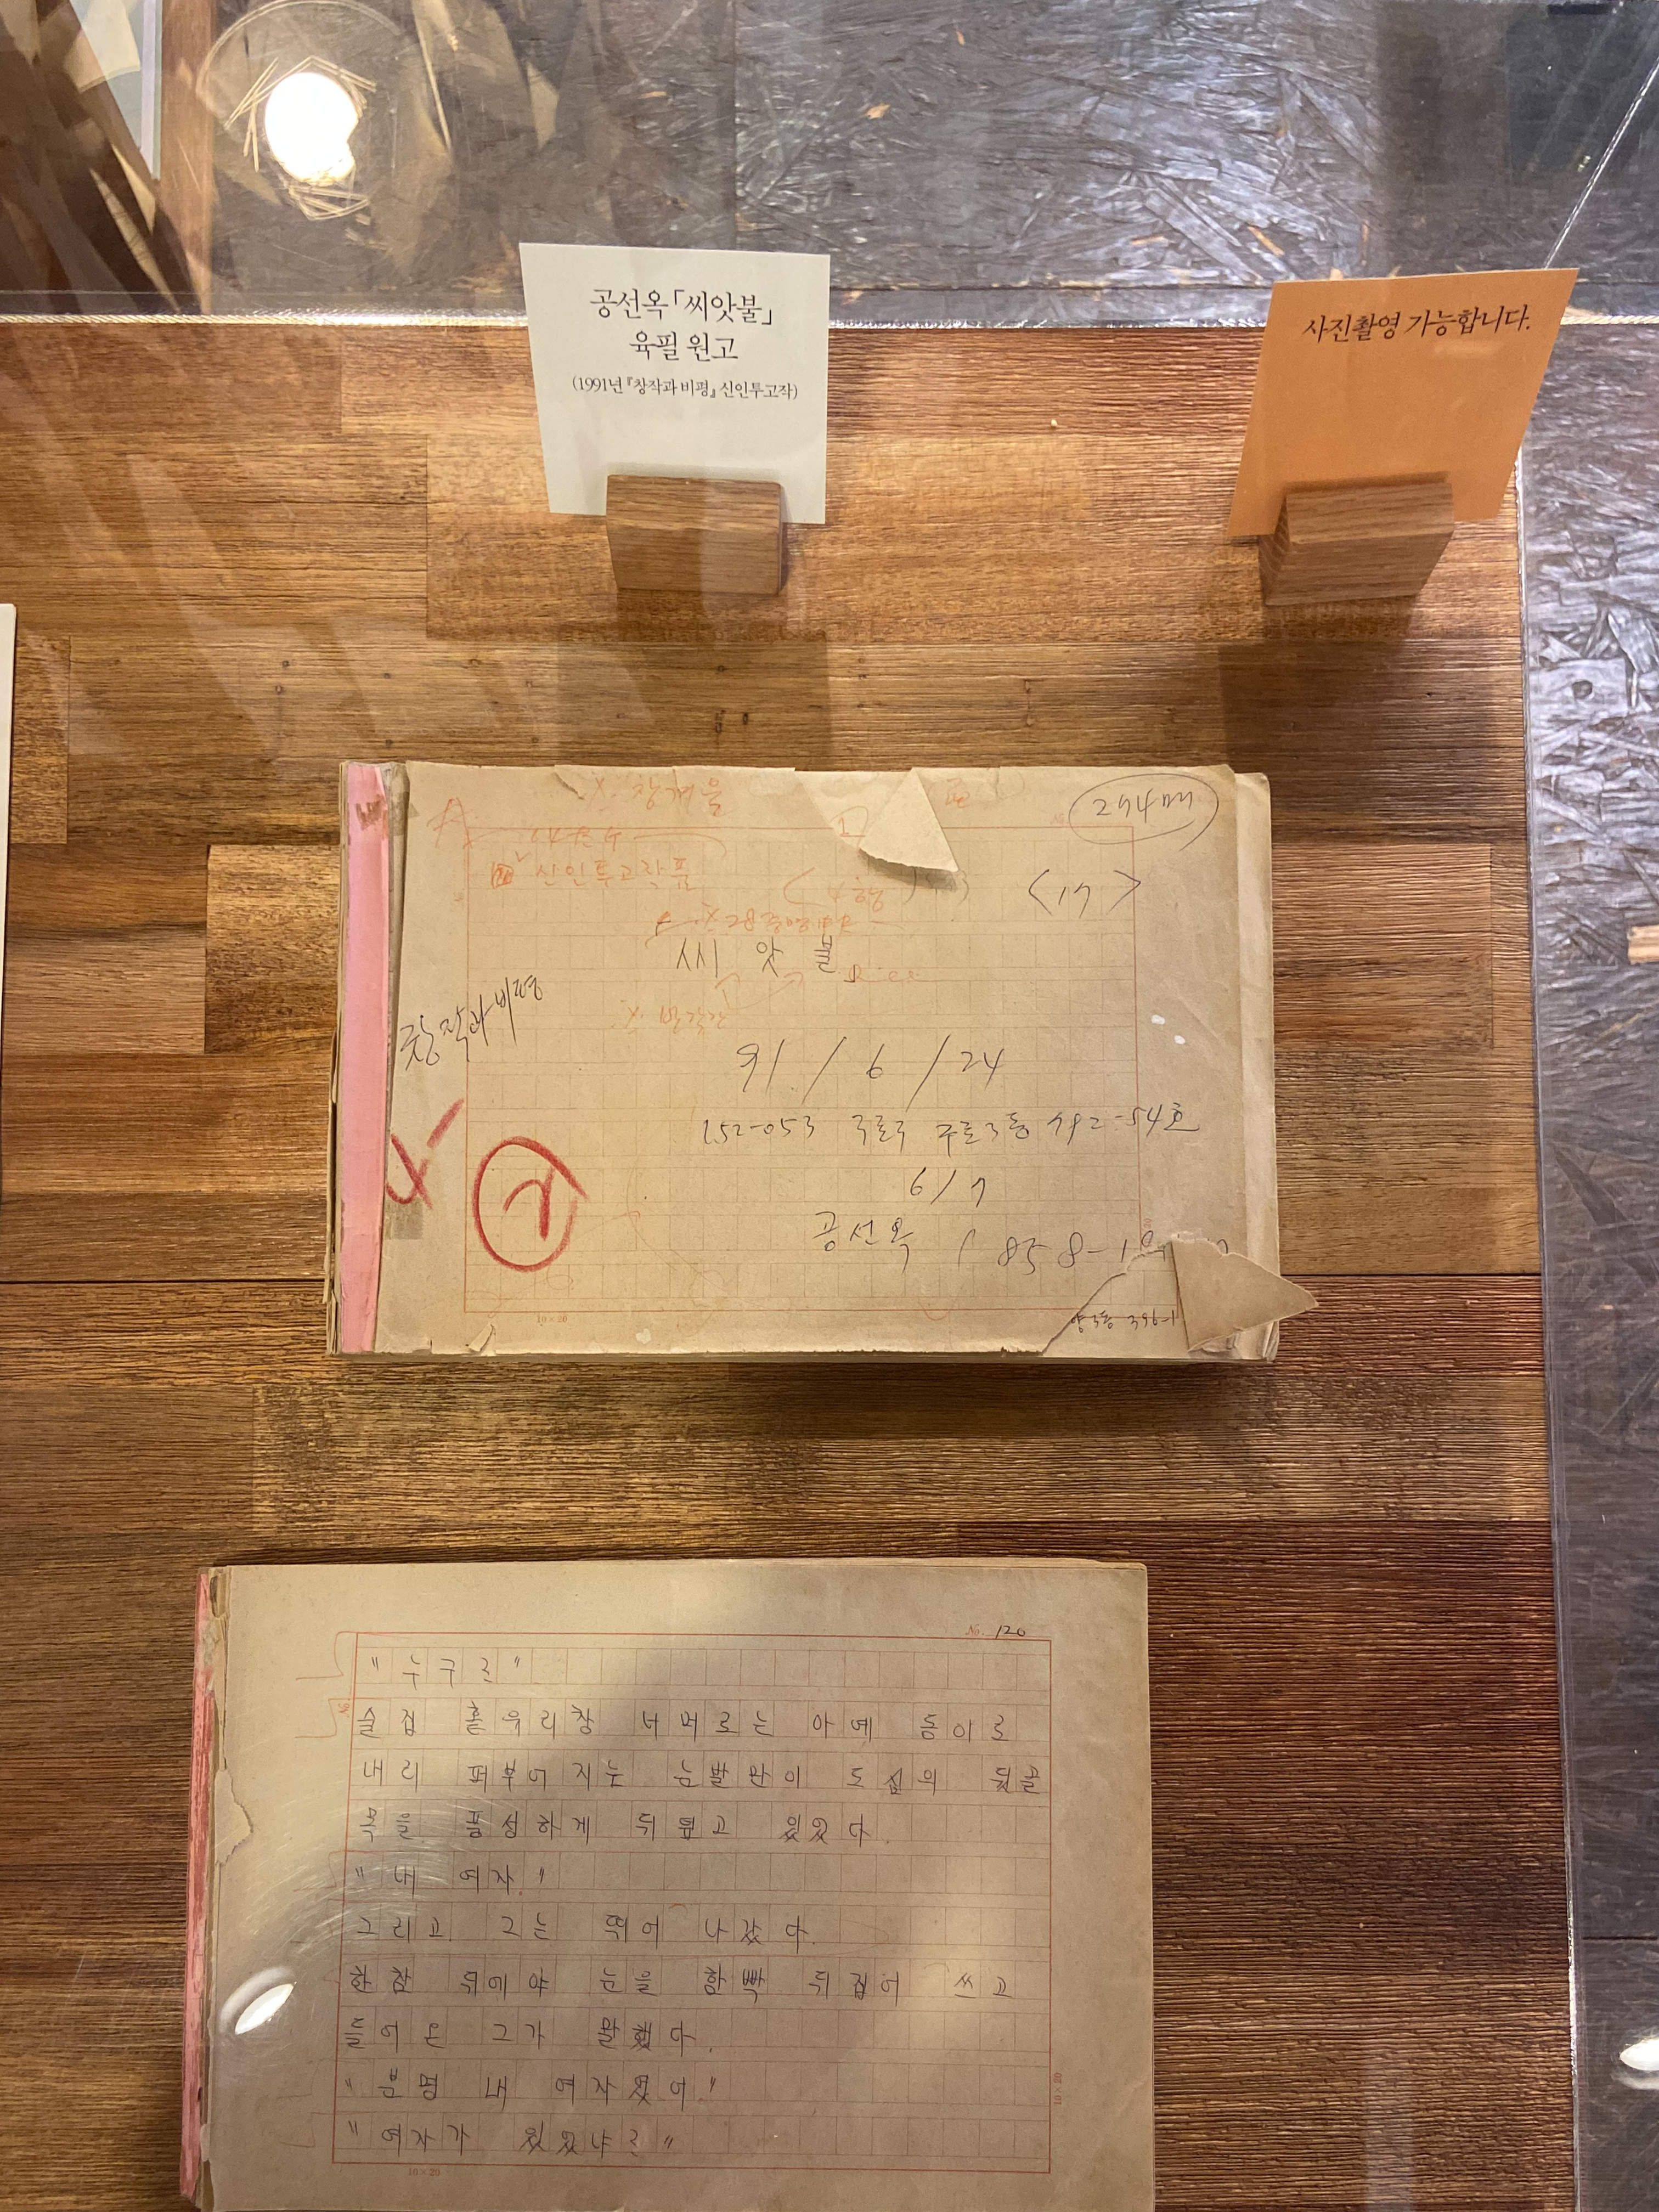 공선옥 「씨앗불」
육필 원고
(1991년 『창작과 비평』 신인투고작)
사진촬영 가능합니다.
274매
A
신인투고작품
<17>
씨 앗 불
창작과 비평
91 / 6 / 24
152-053 구로구 구로3동
6/7
공선옥
10×20
No. 120
"누구를"
술집 홑유리창 너머로는 아예 동이로
내리 퍼부어지는 눈발만이 도심의 뒷골
목을 풍성하게 뒤덮고 있었다.
"내 여자."
그리고 그는 뛰어 나갔다.
한참 뒤에야 눈을 함빡 뒤집어 쓰고
들어온 그가 말했다.
"분명 내 여자였어."
"여자가 있었냐른"
10×20
10×20